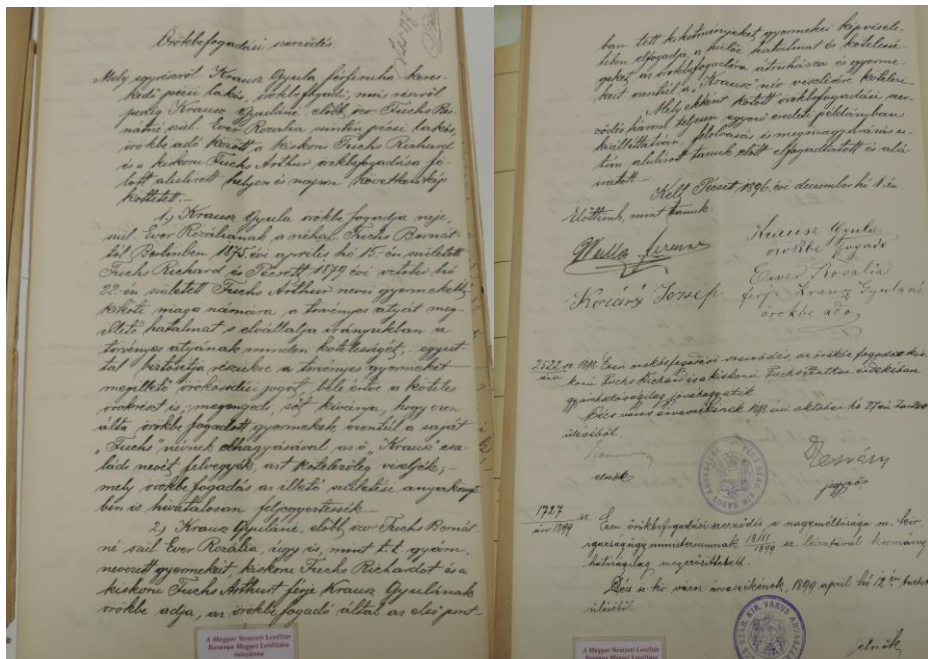 Örökbefogadási szerződés
Mely egyrészről Krausz Gyula férfiruha keres-
kedő pécsi lakós, örökbefogadó, más részről
pedig Krausz Gyuláné, előbb özv Fuchs Ber-
nátné szül. Ever Rozália szintén pécsi lakós,
örökbe adó között a kiskorú Fuchs Richard
és a kiskorú Fuchs Arthur örökbefogadása fö-
lött alulírott helyen és napon következőkép
köttetett. —
1.) Krausz Gyula örökbe fogadja neje,
szül. Ever Rozáliának a néhai Fuchs Bernát-
tól Berlinben 1875. évi április hó 15-én született
Fuchs Richard és Pécsett, 1879 évi október hó
22-én született Fuchs Arthur nevű gyermekeit,
kiköti maga számára a törvényes atyját meg-
illető hatalmat s elvállalja irányukban a
törvényes atyának minden kötelességét, — egyut-
tal biztosítja részükre a törvényes gyermeket
megillető öröködési jogot, bele értve a köteles
örökrészt is, megengedi, sőt kívánja, hogy ezen
általa örökbe fogadott gyermekek ezentúl a saját
„Fuchs" nevük elhagyásával az ő „Krausz" csa-
ládi nevét felvegyék, azt kötelezőleg viseljék, —
mely örökbe fogadás az illető születési anyaköny-
ben is hivatalosan feljegyeztessék. —
2.) Krausz Gyuláné, előbb özv Fuchs Bernát-
né szül Ever Rozália, úgy is, mint t. t. gyám,
nevezett gyermekeit, kiskorú Fuchs Richardot és a
kiskorú Fuchs Arthurt férje Krausz Gyulának
örökbe adja, az örökbefogadó által az első pont-
A Magyar Nemzeti Levéltár
Baranya Megyei Levéltára
tulajdona
ban tett kikötményeket gyermekei képviselé-
ben elfogadja, a szülői hatalmat és kötelessé-
geket az örökbefogadóra átruházza és gyerme-
keit ezentúl a „Krausz" név viselésére kötelezi.
Mely ekként kötött örökbefogadási szer-
ződés három teljesen egyező eredeti példányban
kiállíttatván, felolvasás és megmagyarázás u-
tán alulírott tanuk előtt elfogadtatott és alá-
íratott. —
Kelt Pécsett, 1896 évi december hó 1-én.
Előttünk, mint tanuk:
Krausz Gyula
örökbe fogadó
József
Ever Rozalia
férje Krausz Gyuláné
örökbe adó
Ezen örökbefogadási szerződés, az örökbe fogadott kis-
korú Fuchs Richard és a kiskorú Fuchs Arthur érdekében
gyámhatóságilag jóváhagyatik
Pécs város árvaszékének október hó 27-én tartott
üléséből.
elnök
jegyző
1727
árv. 1899 sz
Ezen örökbefogadási szerződés a nagyméltóságu m. kir.
igazságügyminiszteriumnak 18111/1899 sz. leiratával kormány
hatóságilag megerősíttetett.
Pécs sz. kir. város árvaszékének, 1899 április hó 12-én tartott
üléséből
elnök